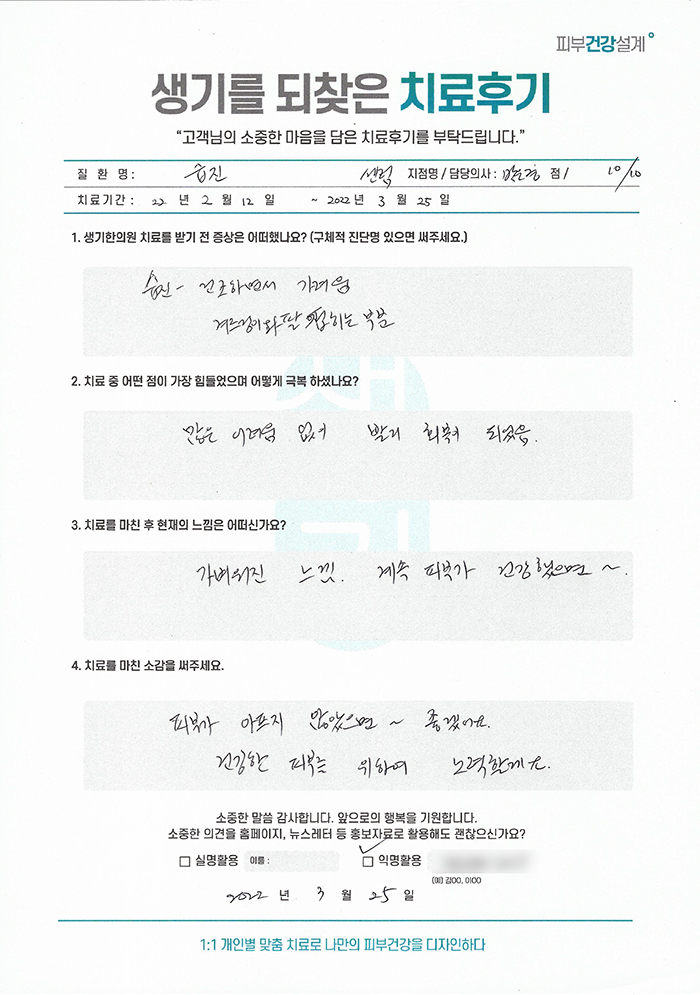 피부건강설계
생기를 되찾은 치료후기
“고객님의 소중한 마음을 담은 치료후기를 부탁드립니다.”
질 환 명 : 습진 센텀 지점명 / 담당의사 : 점 / 10/10
치료기간 : 22 년 2 월 12 일 ~ 2022 년 3 월 25 일
1. 생기한의원 치료를 받기 전 증상은 어떠했나요? (구체적 진단명 있으면 써주세요.)
습진 - 건조하면서 가려움
겨드랑이와 팔 접히는 부분
2. 치료 중 어떤 점이 가장 힘들었으며 어떻게 극복 하셨나요?
많은 어려움 없이 빨리 회복이 되었음.
3. 치료를 마친 후 현재의 느낌은 어떠신가요?
가벼워진 느낌. 계속 피부가 건강했으면 ~.
4. 치료를 마친 소감을 써주세요.
피부가 아프지 않았으면 ~ 좋겠어요.
건강한 피부를 위하여 노력할게요.
소중한 말씀 감사합니다. 앞으로의 행복을 기원합니다.
소중한 의견을 홈페이지, 뉴스레터 등 홍보자료로 활용해도 괜찮으신가요?
실명활용 이름 : 익명활용
(예) 김OO, 이OO
2022 년 3 월 25 일
1:1 개인별 맞춤 치료로 나만의 피부건강을 디자인하다